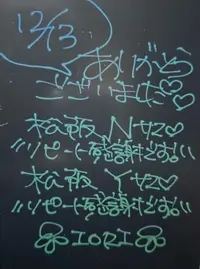 12/13
ありがとう
ございました♡♡
松阪 Nサマ♡
〃リピート感謝です!!〃
松阪 Yサマ♡
〃リピート感謝です!!〃
IORI